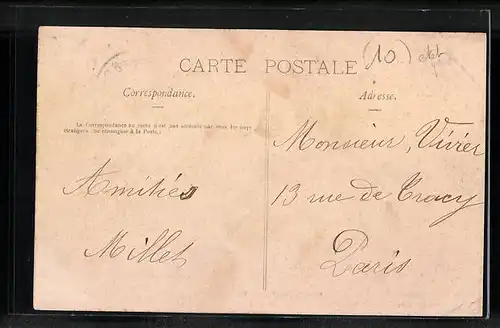 CARTE POSTALE
(10)
Correspondance.
La Correspondance au recto n'est pas acceptée par tous les pays
étrangers (Se renseigner à la Poste.)
Amitiés
Millet
Adresse.
Monsieur Vivier
13 rue de Tracy
Paris